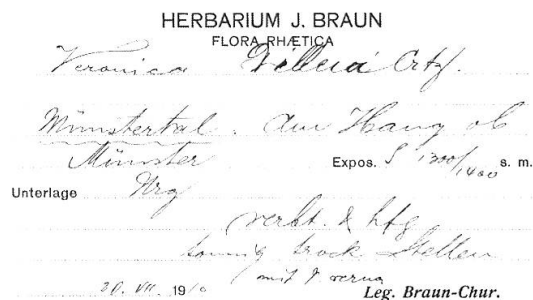 HERBARIUM J. BRAUN
FLORA RHÆTICA
Veronica Dillenii Crtz.
Münstertal. Am Hang ob
Münster Expos. S 1300/1400 s. m.
Unterlage Urg
verbt. & hfg
sonnig trock. Stellen
mit V verna
20. VII. 191 Leg. Braun-Chur.